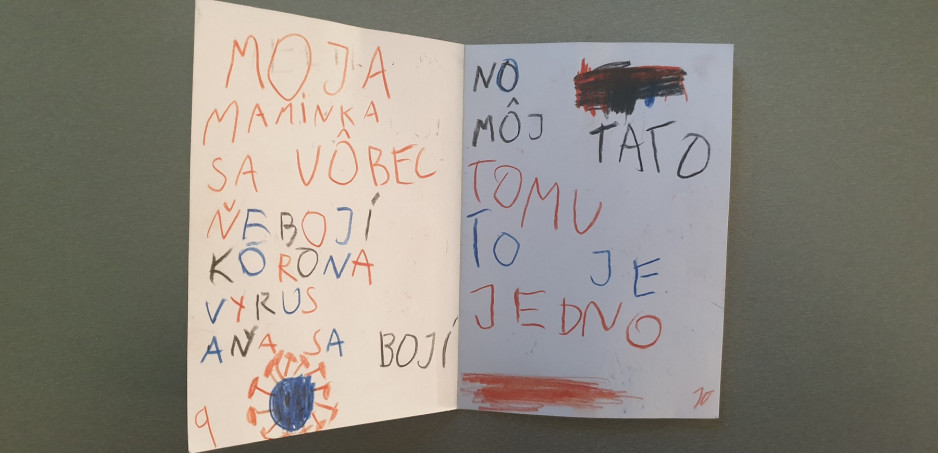 MOJA
MAMINKA
SA VÔBEC
ŇEBOJÍ
KÔRONA
VYRUS
AŇA SA BOJÍ
9
NO
MÔJ TATO
TOMU
TO JE
JEDNO
10